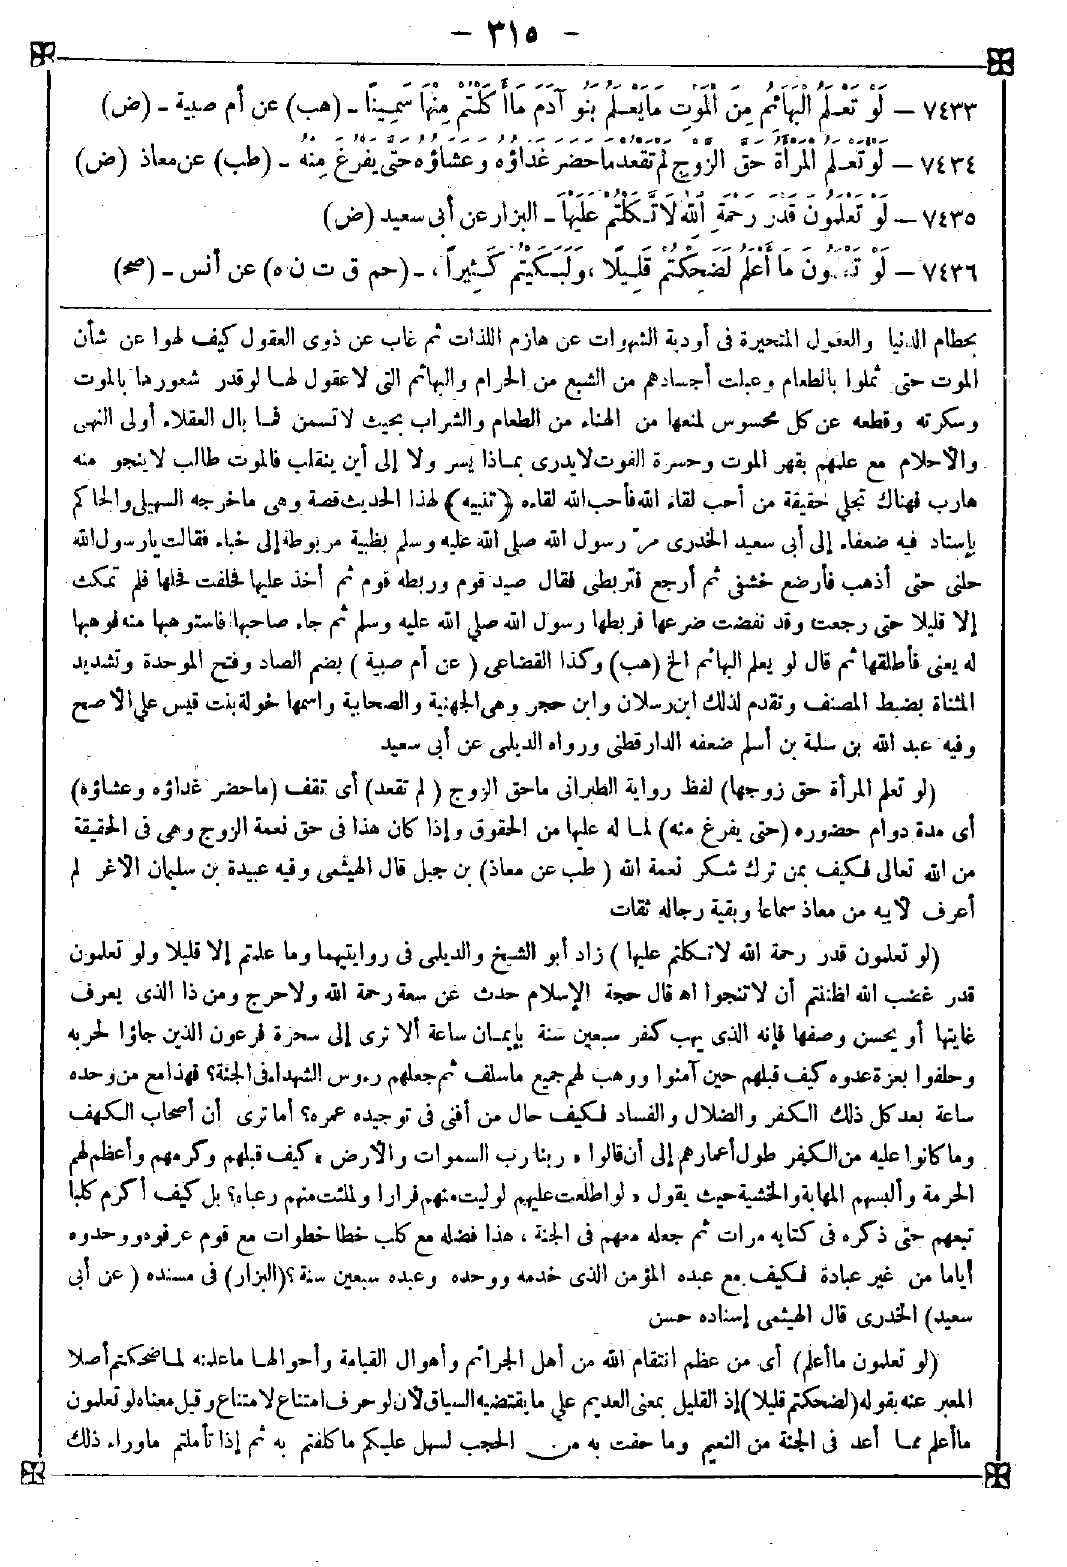 - ٣١٥ -
٧٤٣٣ - لَوْ تَعْلَمُ الْبَهَائِمُ مِنَ الْمَوْتِ مَا يَعْلَمُ بَنُو آدَمَ مَا أَكَلْتُمْ مِنْهَا سَمِينًا - (هب) عن أم صبية - (ض)
٧٤٣٤ - لَوْ تَعْلَمُ الْمَرْأَةُ حَقَّ الزَّوْجِ لَمْ تَقْعُدْ مَا حَضَرَ غَدَاؤُهُ وَعَشَاؤُهُ حَتَّى يَفْرُغَ مِنْهُ - (طب) عن معاذ (ض)
٧٤٣٥ - لَوْ تَعْلَمُونَ قَدْرَ رَحْمَةِ اللهِ لَاتَّكَلْتُمْ عَلَيْهَا - البزار عن أبى سعيد (ض)
٧٤٣٦ - لَوْ تَعْلَمُونَ مَا أَعْلَمُ لَضَحِكْتُمْ قَلِيلًا، وَلَبَكَيْتُمْ كَثِيرًا، - (حم ق ت ن ه) عن أنس - (صح)
بحطام الدنيا والعقول المتحيرة فى أودية الشهوات عن هازم اللذات ثم غاب عن ذوى العقول كيف لهوا عن شأن
الموت حتى ثملوا بالطعام وعبلت أجسادهم من الشبع من الحرام والبهائم التى لا عقول لها لو قدر شعورها بالموت
وسكرته وقطعه عن كل محسوس لمنعها من الهناء من الطعام والشراب بحيث لا تسمن فما بال العقلاء أولى النهى
والأحلام مع علمهم بقهر الموت وحسرة الفوت لا يدرى بماذا يسر ولا إلى أين ينقلب فالموت طالب لا ينجو منه
هارب فهناك تجلي حقيقة من أحب لقاء الله فأحب الله لقاءه (تنبيه) لهذا الحديث قصة وهى ما خرجه السهيلي والحاكم
بإسناد فيه ضعفاء إلى أبى سعيد الخدرى مر رسول الله صلى الله عليه وسلم بظبية مربوطة إلى خباء فقالت يا رسول الله
حلنى حتى أذهب فأرضع خشفى ثم أرجع فتربطنى فقال صيد قوم وربطه قوم ثم أخذ عليها فحلفت فحلها فلم تمكث
إلا قليلا حتى رجعت وقد نفضت ضرعها فربطها رسول الله صلي الله عليه وسلم ثم جاء صاحبها فاستوهبها منه فوهبها
له يعنى فأطلقها ثم قال لو يعلم البهائم الخ (هب) وكذا القضاعى (عن أم صبية) بضم الصاد وفتح الموحدة وتشديد
المثناة بضبط المصنف وتقدم لذلك ابن رسلان وابن حجر وهى الجهنية والصحابية واسمها خولة بنت قيس علي الأصح
وفيه عبد الله بن سلمة بن أسلم ضعفه الدارقطنى ورواه الديلمى عن أبى سعيد
(لو تعلم المرأة حق زوجها) لفظ رواية الطبرانى ما حق الزوج (لم تقعد) أى تقف (ما حضر غداؤه وعشاؤه)
أى مدة دوام حضوره (حتى يفرغ منه) لما له عليها من الحقوق وإذا كان هذا فى حق نعمة الزوج وهى فى الحقيقة
من الله تعالى فكيف بمن ترك شكر نعمة الله (طب عن معاذ) بن جبل قال الهيثمى وفيه عبيدة بن سليمان الأغر لم
أعرف لأبيه من معاذ سماعا وبقية رجاله ثقات
(لو تعلمون قدر رحمة الله لاتكلتم عليها) زاد أبو الشيخ والديلمى فى روايتيهما وما علمتم إلا قليلا ولو تعلمون
قدر غضب الله لظننتم أن لا تنجوا اه قال حجة الإسلام حدث عن سعة رحمة الله ولا حرج ومن ذا الذى يعرف
غايتها أو يحسن وصفها فإنه الذى يهب كفر سبعين سنة بإيمان ساعة ألا ترى إلى سحرة فرعون الذين جاؤا لحربه
وحلفوا بعزة عدوه كيف قبلهم حين آمنوا ووهب لهم جميع ما سلف ثم جعلهم رءوس الشهداء فى الجنة؟ فهذا مع من وحده
ساعة بعد كل ذلك الكفر والضلال والفساد فكيف حال من أفنى فى توحيده عمره؟ أما ترى أن أصحاب الكهف
وما كانوا عليه من الكفر طول أعمارهم إلى أن قالوا «ربنا رب السموات والأرض» كيف قبلهم وكرمهم وأعظم لهم
الحرمة وألبسهم المهابة والخشية حيث يقول «لو اطلعت عليهم لوليت منهم فرارا ولملئت منهم رعبا»؟ بل كيف أكرم كلبا
تبعهم حتى ذكره فى كتابه مرات ثم جعله معهم فى الجنة، هذا فضله مع كلب خطا خطوات مع قوم عرفوه ووحدوه
أياما من غير عبادة فكيف مع عبده المؤمن الذى خدمه ووحده وعبده سبعين سنة؟ (البزار) فى مسنده (عن أبى
سعيد) الخدرى قال الهيثمى إسناده حسن
(لو تعلمون ما أعلم) أى من عظم انتقام الله من أهل الجرائم وأهوال القيامة وأحوالها ما علمته لما ضحكتم أصلا
المعبر عنه بقوله (لضحكتم قليلا) إذ القليل بمعنى العديم علي ما يقتضيه السياق لأن لو حرف امتناع لامتناع وقيل معناه لو تعلمون
ما أعلم مما أعد فى الجنة من النعيم وما حفت به من الحجب لسهل عليكم ما كلفتم به ثم إذا تأملتم ما وراء ذلك